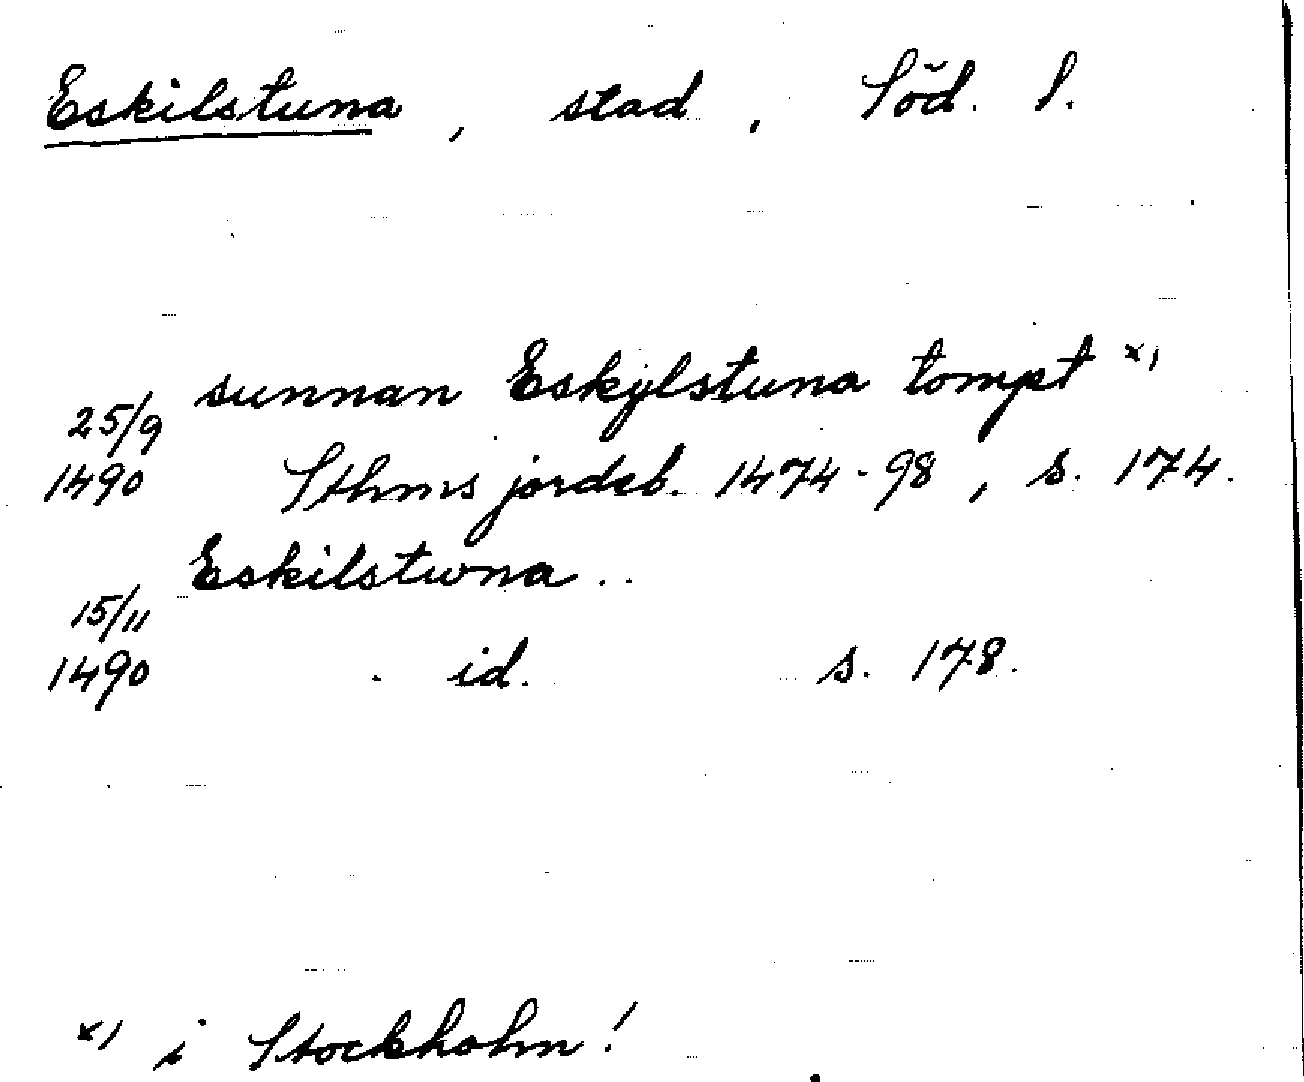 Eskilstuna, stad, Söd. l.
sunnan Eskylstuna tompt x)
25/9
1490 Sthms jordeb. 1474-98, s. 174.
Eskilstwna ..
15/11
1490 id. s. 178.
x) i Stockholm!